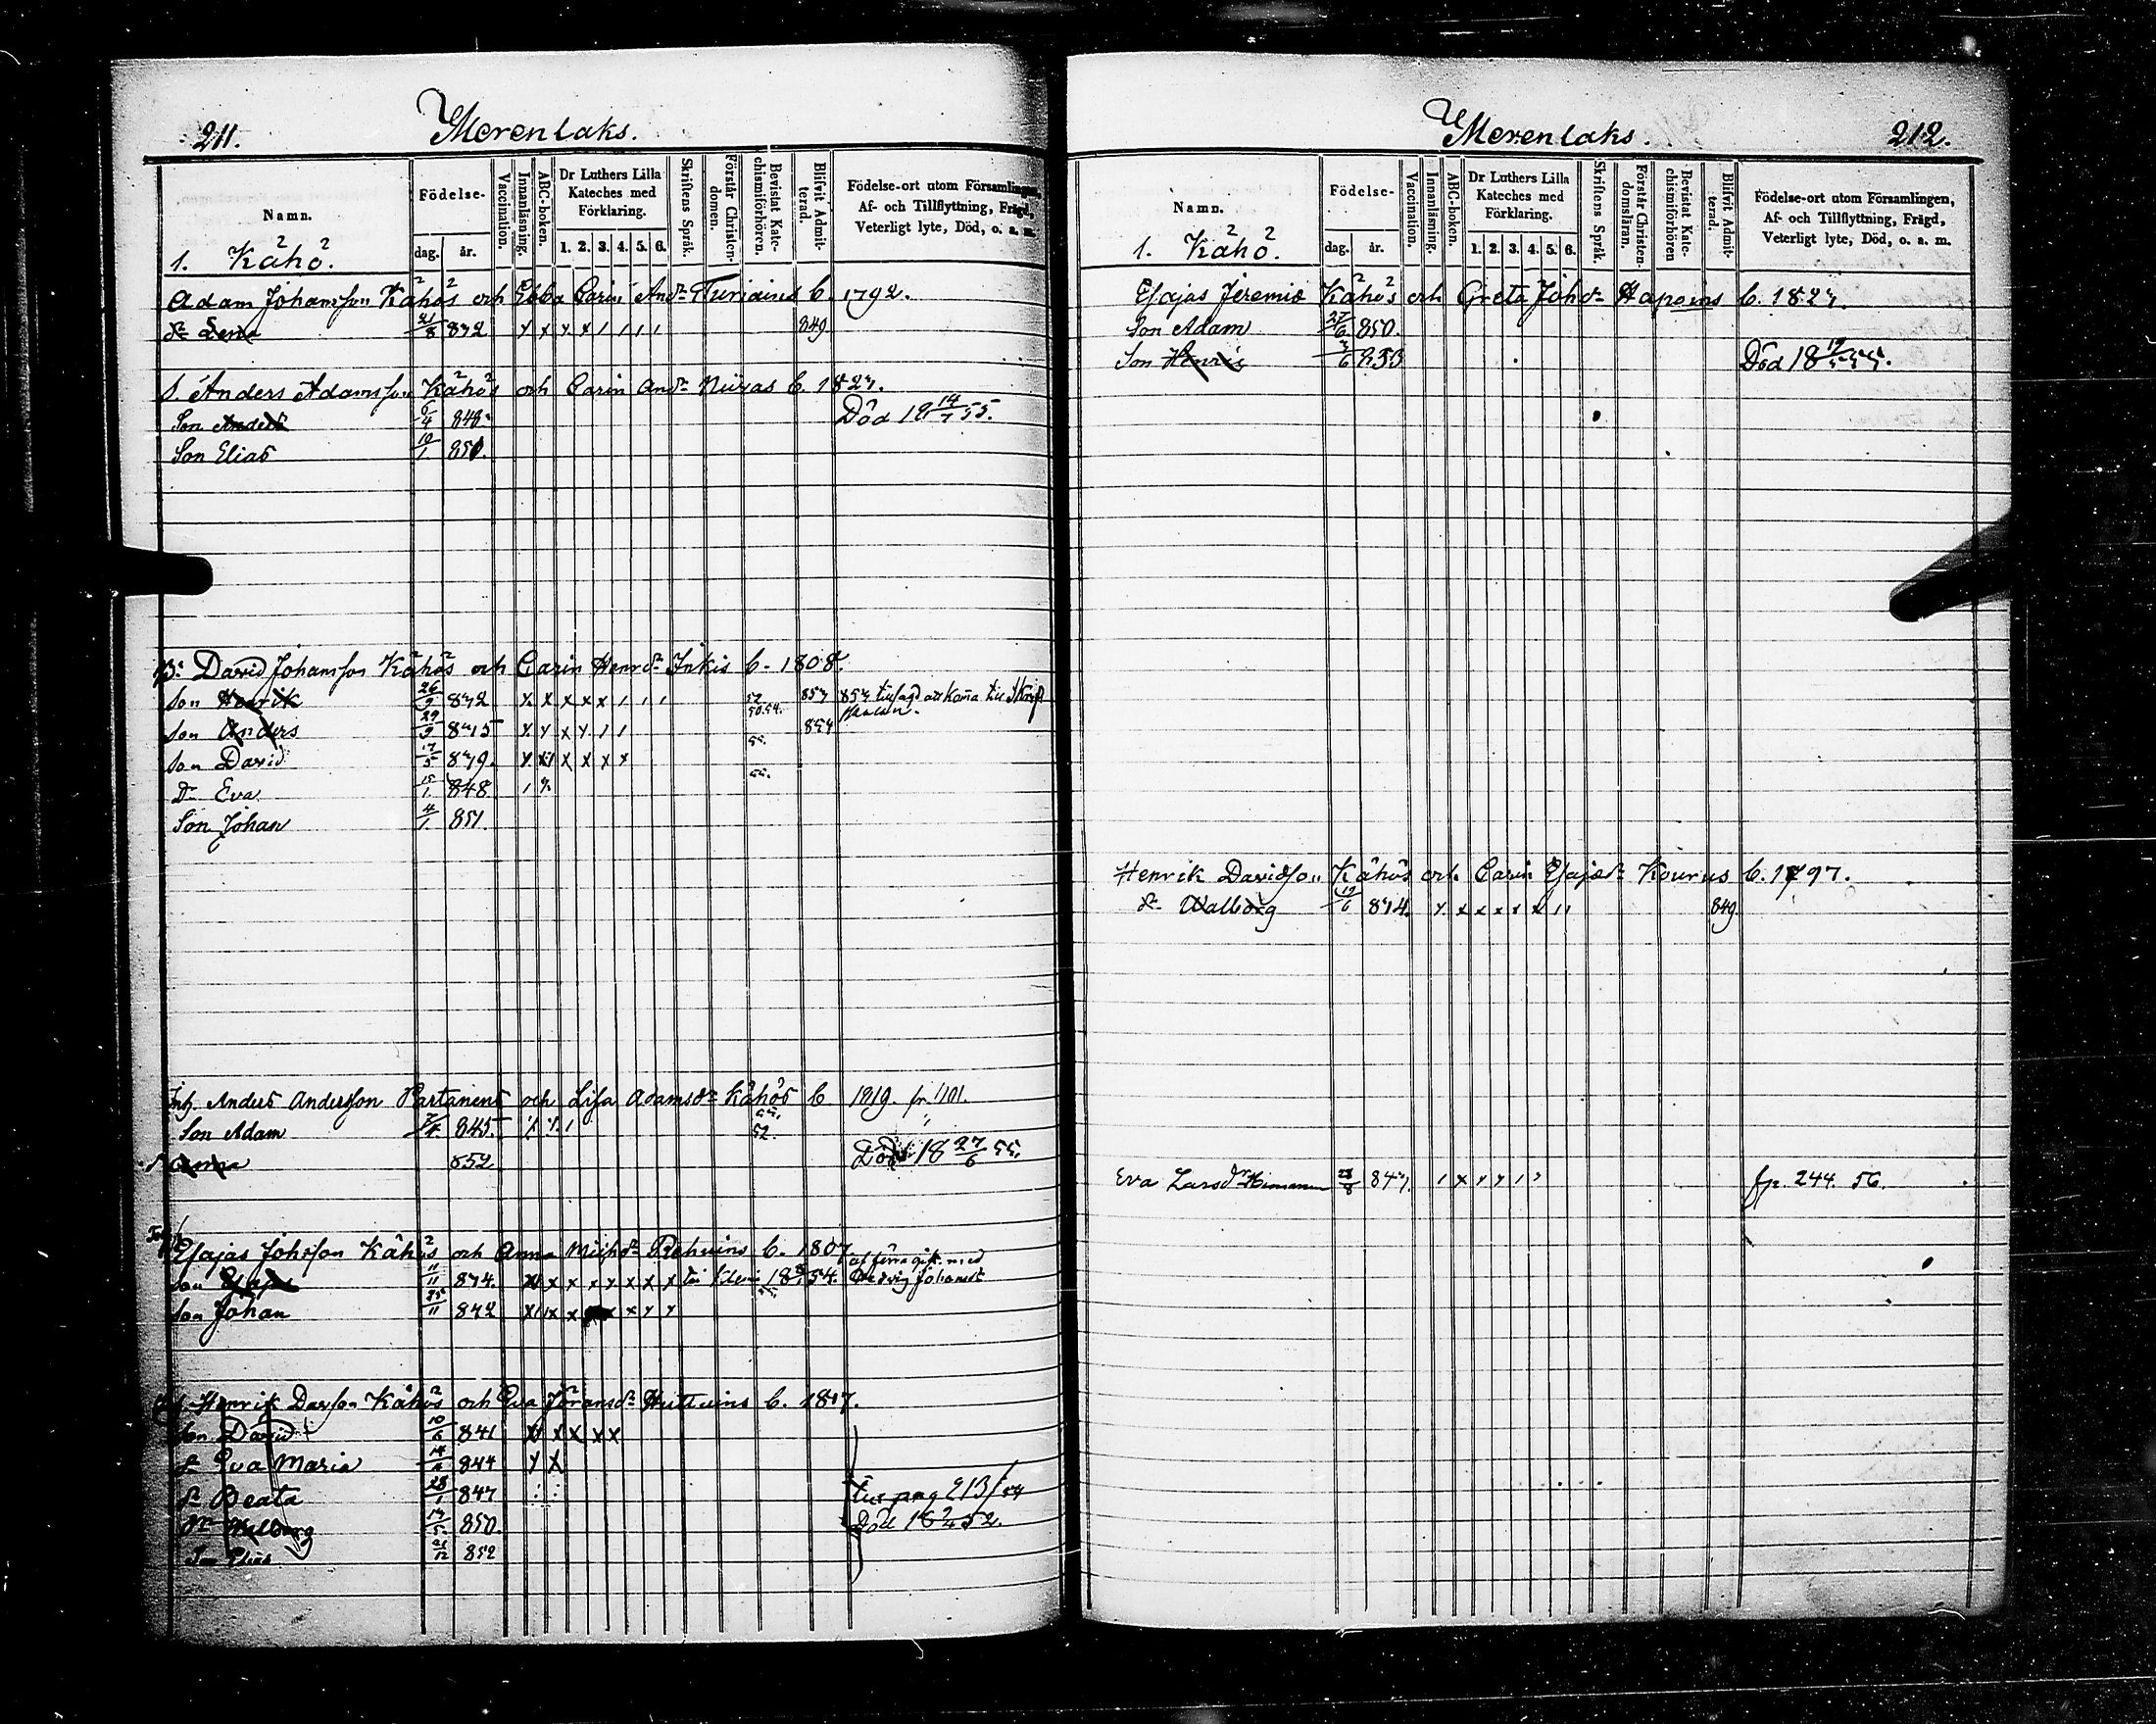 211.
Merenlaks.
Namn.
Födelse-
dag. år.
Vaccination.
Innanläsning.
ABC-boken.
Dr Luthers Lilla Kateches med Förklaring.
1. 2. 3. 4. 5. 6.
Skriftens Språk.
Förstår Christen-domen.
Bevistat Kate-chismiförhören.
Blifvit Admit-terad.
Födelse-ort utom Församlingen,
Af- och Tillflyttning, Frägd,
Veterligt lyte, Död, o. a. m.
1. Kähö.
Adam Johansson Kähös och Ebba Carin And:dr Turiains C. 1792.
dr Lena 21/8 832 849
S. Anders Adamsson Kähös och Carin And:dr C. 1827.
Son Anders 5/4 848 Död 18 14/7 55.
Son Elias 10/1 850.
Br: David Johansson Kähös och Carin Henr:dr Inkis C. 1808.
Son Henrik 26/9 832 52 857 857 tillsagd att koma till
Son Anders 29/9 835 50.54. 854
Son David 17/5 839. 55.
Dr Eva 15/1 848 55.
Son Johan 4/1 851.
Inh. Anders Andersson Partanens och Lisa Adamsdr Kähös C 1819. fr. 1101.
Son Adam 7/4 845 52
dr Anna 852 Död 18 27/6 55.
Esajas Johsson Kähös och Anna Michdr Rehuins C. 1807
Son Esajas 11/11 834. 54. af förra gift. med Hedvig Johansdr
Son Johan 25/11 842
Henrik Davson Kähös och Eva Jöransdr Huttuins C. 1817.
Son David 10/6 841
dr Eva Maria 844
dr Beata 28/1 847 till pag 213/54
dr Walborg 14/5 850. Död 18 2/4 52.
Son Elias 21/12 852
Merenlaks.
212.
Namn.
Födelse-
dag. år.
Vaccination.
Innanläsning.
ABC-boken.
Dr Luthers Lilla Kateches med Förklaring.
1. 2. 3. 4. 5. 6.
Skriftens Språk.
Förstår Christen-domsläran.
Bevistat Kate-chismiförhören
Blifvit Admit-terad.
Födelse-ort utom Församlingen,
Af- och Tillflyttning, Frägd,
Veterligt lyte, Död, o. a. m.
1. Kähö.
Esajas Jeremis Kähös och Greta Johdr Hapoins C. 1827.
Son Adam 27/6 850.
Son Henric 3/6 853 Död 18
Henrik Davidson Kähös och Carin Esajædr Kourus C. 1797.
dr Walborg 19/6 834. 849.
Eva Larsdr Himanen 28/8 847. fr. 244. 56.